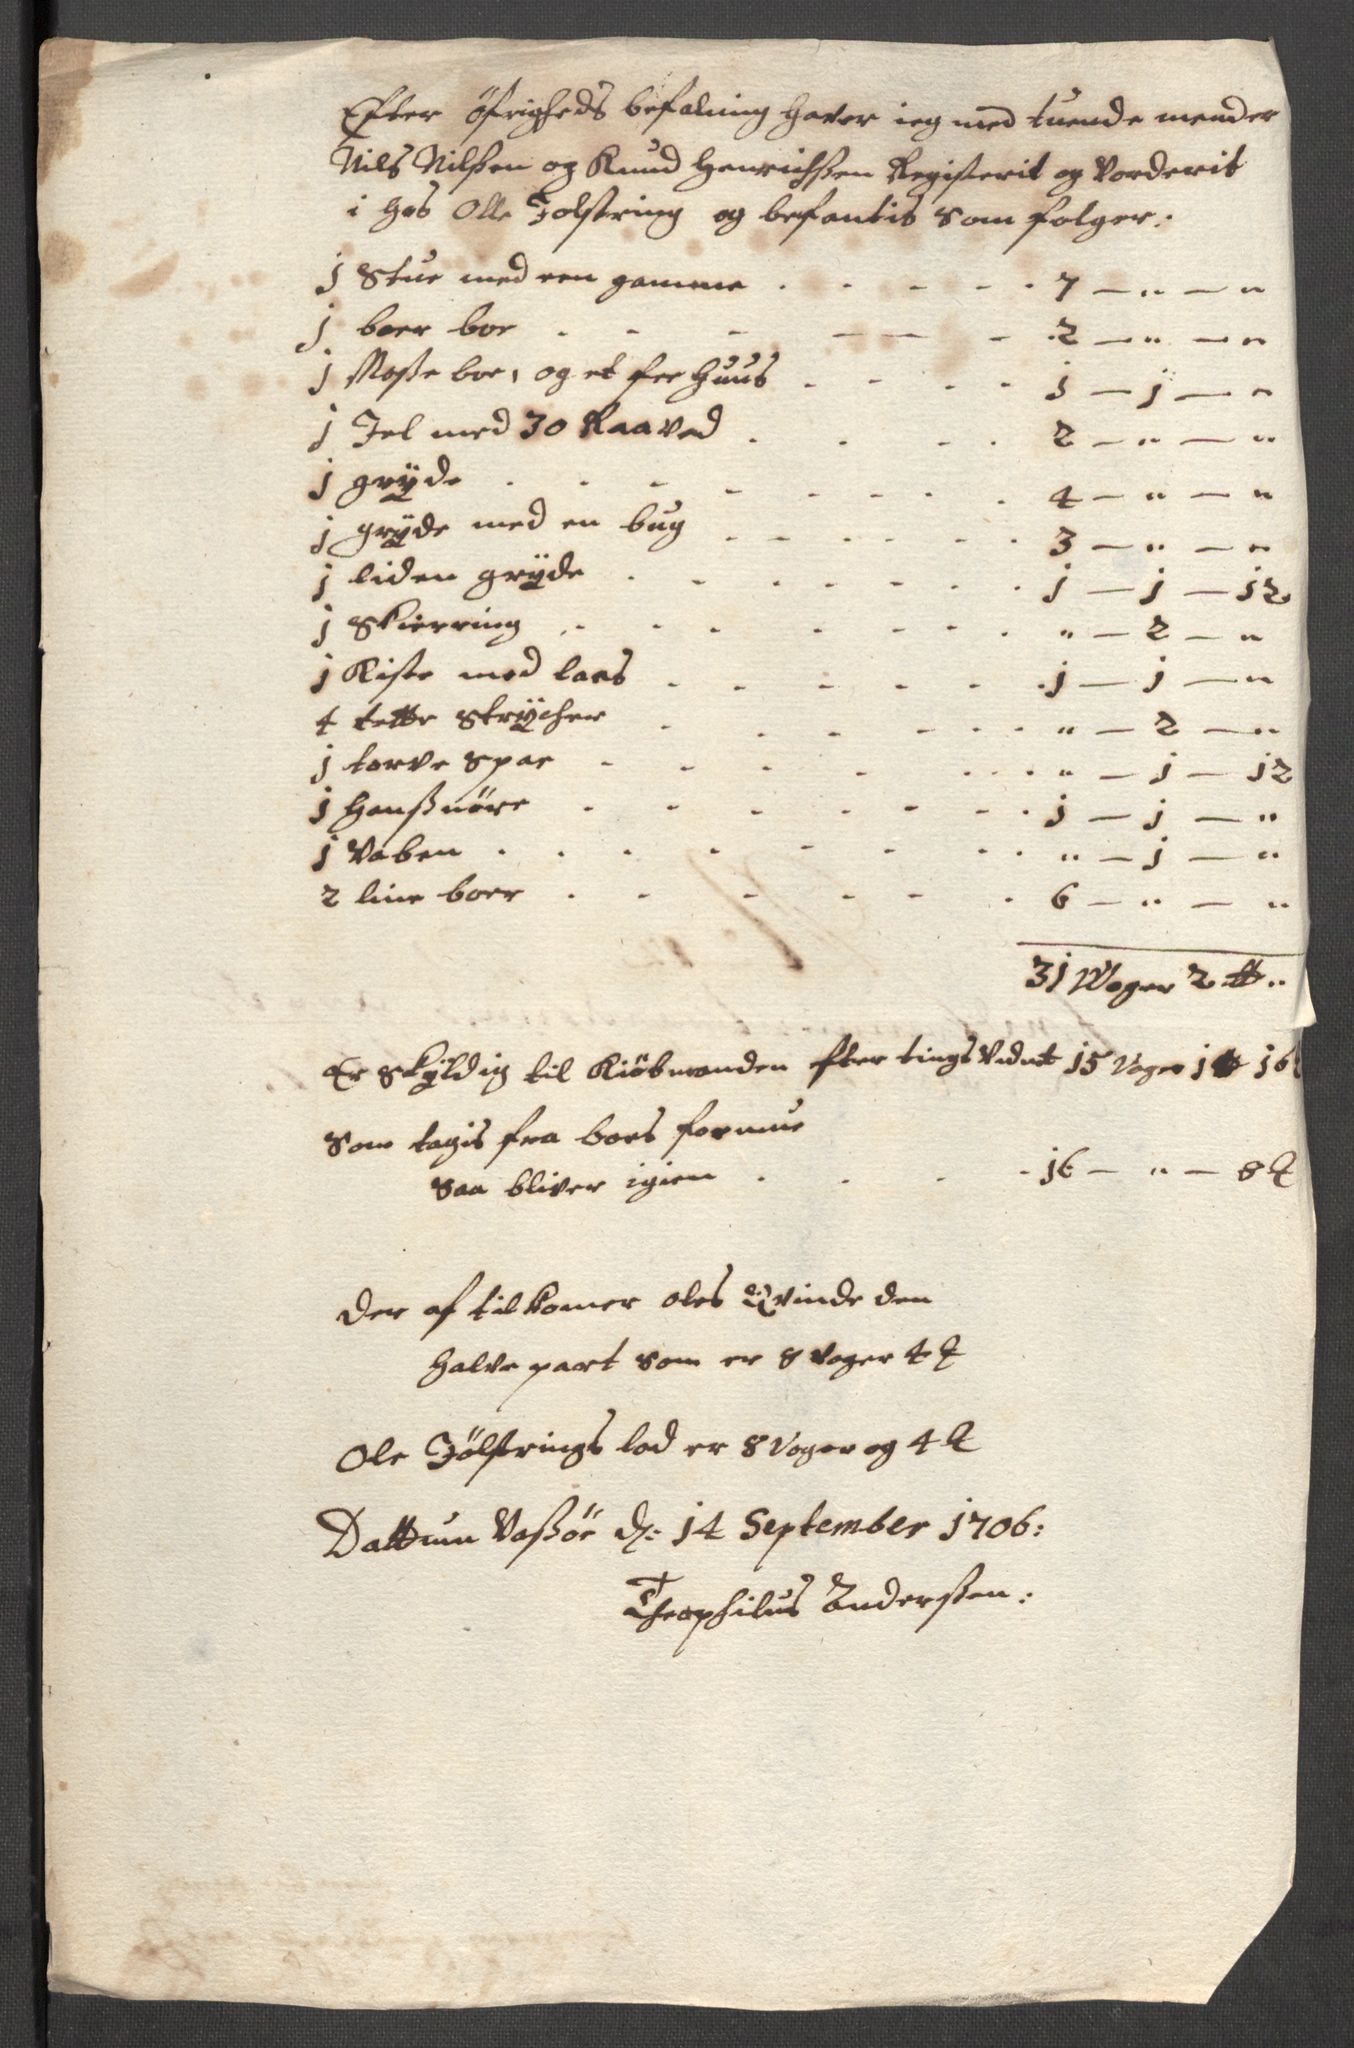 Efter öfrigheds befalning haver ieg med tuende mender
Nils Nilßen og Knud Henrichßen Registerit og Vorderit
i hos Olle Jolstring og befantis som folger:
1 Stue med een gamme . . . . . 7 — " — "
1 boer boe . . . — — . 2 — " — "
1 Moße boe, og et fee huus . . . . 1 — 1 — "
1 Jel med 30 Raaved . . . . 2 — " — "
1 grÿde . . . . . . . . 4 — " — "
1 grÿde med en bug . . . . . . 3 — " — "
1 liden grÿde . . . . . . . 1 — 1 — 12
1 Skierring . . . . . . . " — 2 — "
1 Kiste med laas . . . . . . 1 — 1 — "
4 tette Strÿcher . . . . . " — 2 — "
1 torve Spae . . . . . . . " — 1 — 12
1 hanßnöre . . . . . . . 1 — 1 — "
1 Vaben . . . . . . . . " — 1 — "
2 line boer . . . . . . 6 — " — "
31 Woger 2 ℔ "
Er Skÿldig til Kiöbmanden efter tings Vidnt 15 Voger 1 ℔ 16
Som tagis fra boes formue
saa bliver igien . . . . 16 — " — 8 ℔
Der af tilkomer oles Qvinde den
halve part som er 8 voger 4 ℔
Ole Jölstrings lod er 8 Voger og 4 ℔
Dattum Vaßöe d: 14 September 1706:
Theophilus Anderßen: